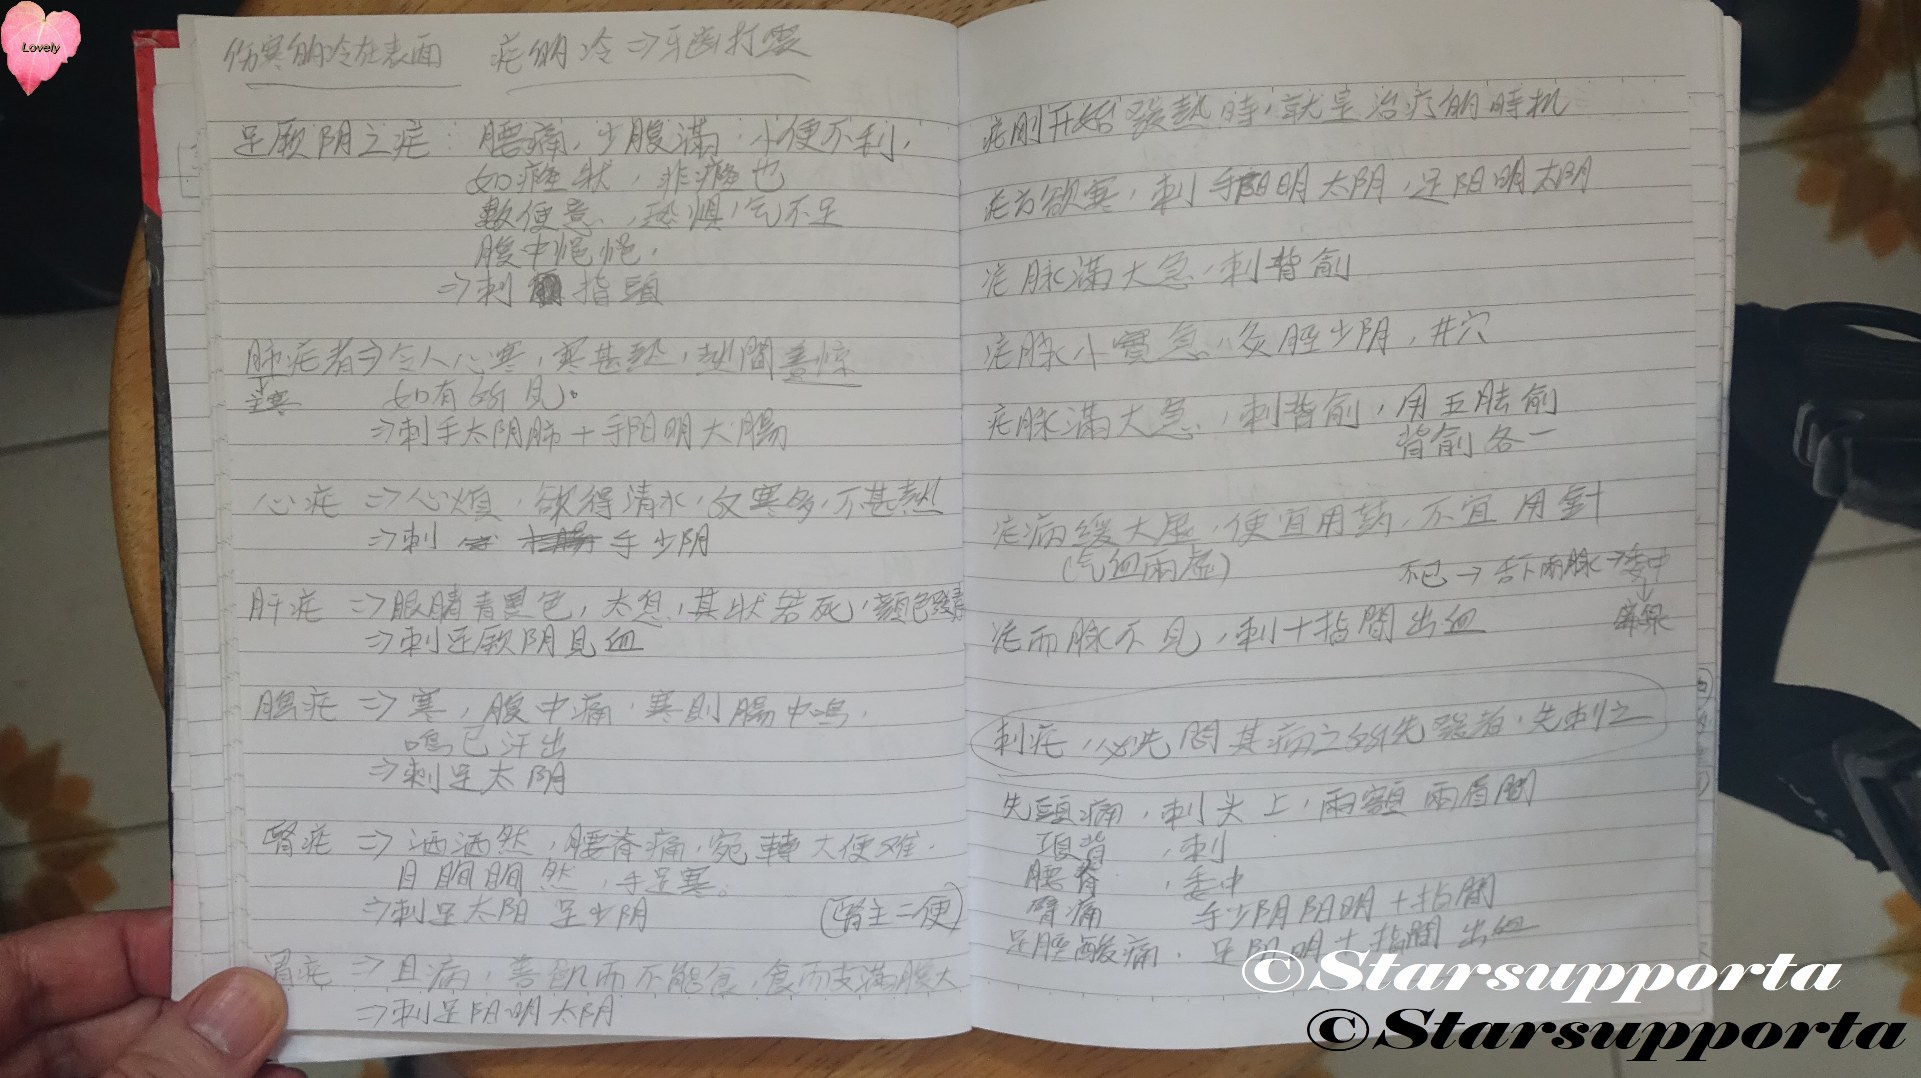 Lovely
伤寒的冷在表面 疟的冷⇒牙齒打震
足厥阴之疟：腰痛，少腹滿，小便不利，
如癃狀，非癃也
數便意，恐惧，气不足
腹中悒悒，
⇒刺 指頭
肺疟者⇒令人心寒，寒甚熱，熱間善惊
主寒
如有所見。
⇒刺手太阴肺＋手阳明大腸
心疟 ⇒心煩，欲得清水，反寒多，不甚熱
⇒刺 手少阴
肝疟 ⇒眼睛青黑色，太息，其狀若死，顏色發青
⇒刺足厥阴見血
⇒寒，腹中痛，寒則腸中鳴，
鳴已汗出
⇒刺足太阴
腎疟 ⇒洒洒然，腰脊痛，宛轉大便难，
目眴眴然，手足寒。
⇒刺足太阳 足少阴 (腎主二便)
胃疟 ⇒且病，善飢而不能食，食而支滿腹大
⇒刺足阳明太阴
疟刚开始發熱時，就是治疗的時机
疟方欲寒，刺手阳明太阴，足阳明太阴
疟脉滿大急，刺背俞
疟脉小實急，灸脛少阴，井穴
疟脉滿大急，刺背俞，用五胠俞
背俞各一
疟病缓大虛，便宜用药，不宜用針
(气血兩虛)
不已→舌下兩脉→委中
↓
疟而脉不見，刺十指間出血
刺疟，必先問其病之所先發者，先刺之
先頭痛，刺头上，兩額兩眉間
項背 ，刺
腰脊 ，委中
臂痛 手少阴阳明十指間
足脛酸痛，足阳明十指間出血
©Starsupporta
©Starsupporta